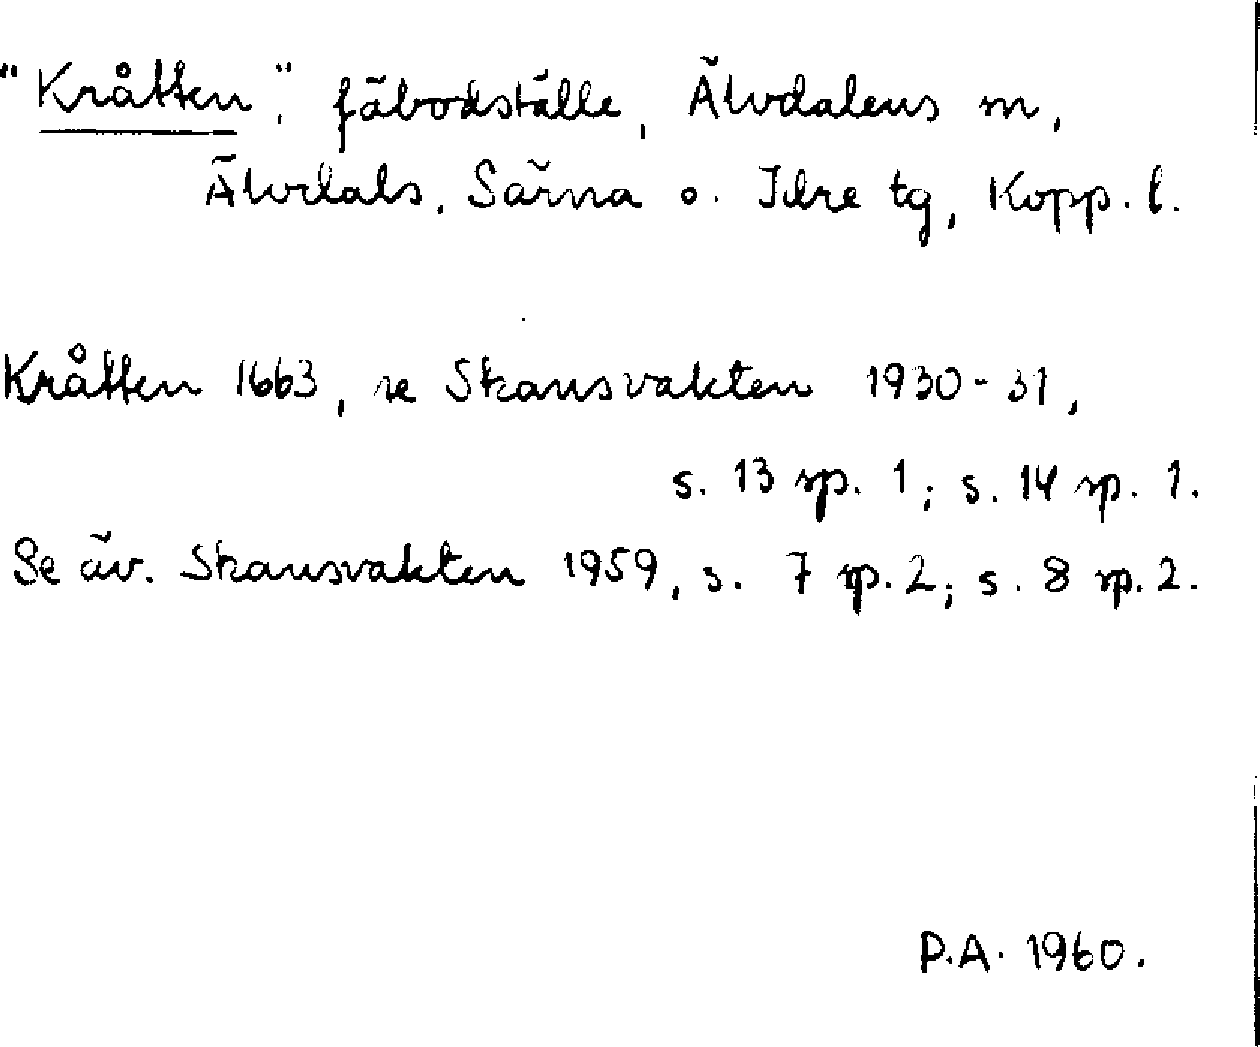 "Kråtten", fäbodställe, Älvdalens sn,
Älvdals, Särna o. Idre tg, Kopp. l.
Kråtten 1663, se Skansvakten 1930-31,
s. 13 sp. 1; s. 14 sp. 1.
Se äv. Skansvakten 1959, s. 7 sp. 2; s. 8 sp. 2.
P.A. 1960.